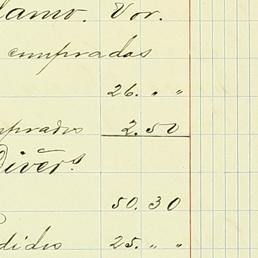 lamo. Vor.
compradas
26. " "
mprados 2.50
Divers.
50.30
didos 25. " "